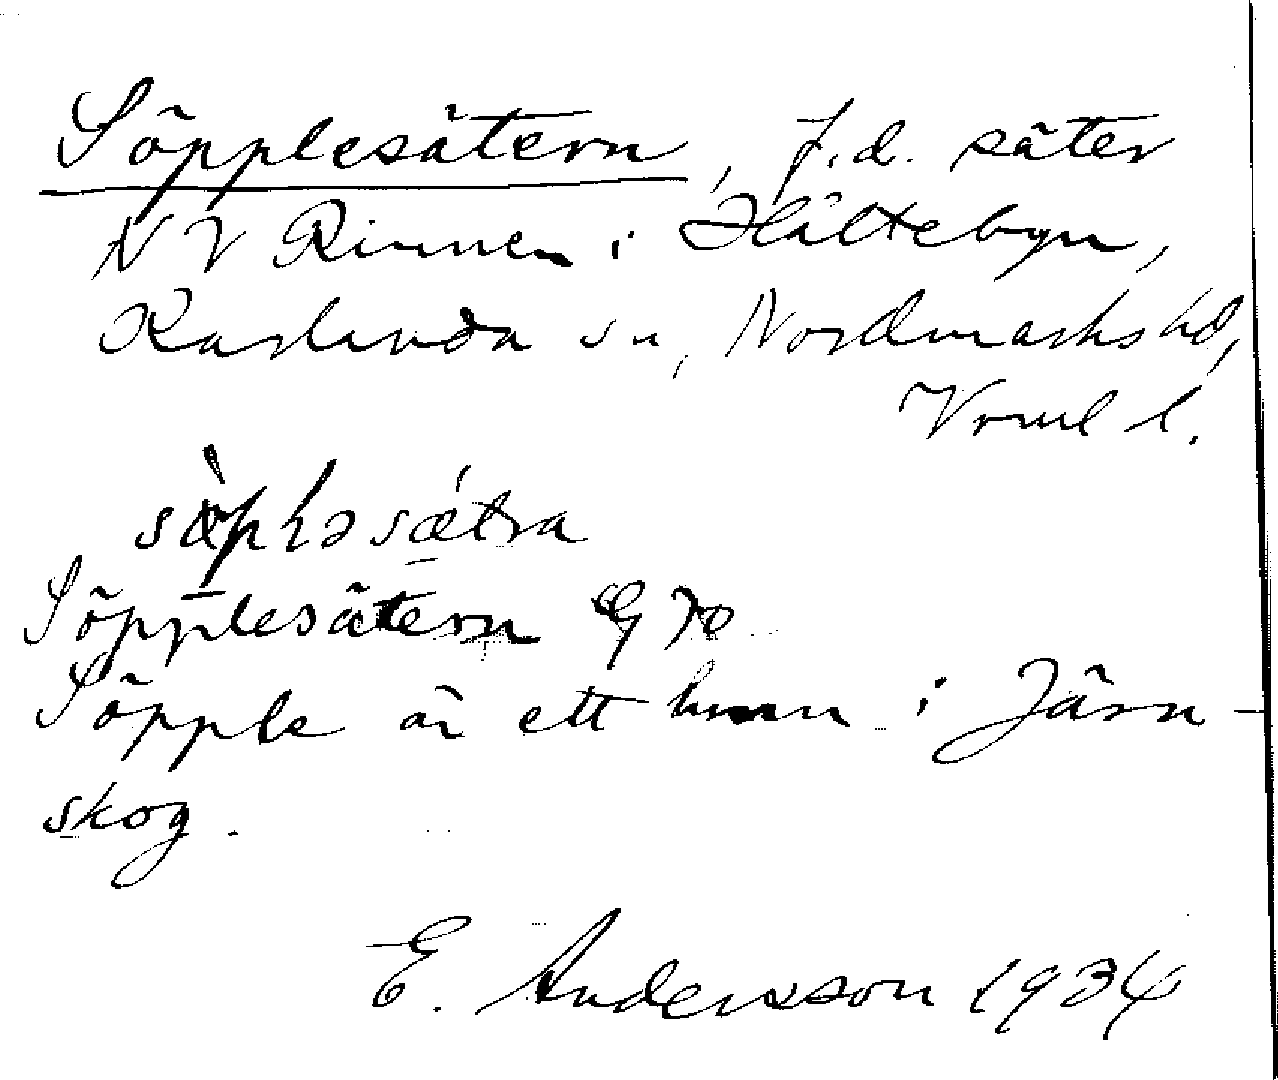 Söpplesätern, f.d. säter
NV Rinnen i Hältebyn,
Karlanda sn, Nordmarks hd,
Vrml l.
Söpplesätern G 70
Söpple är ett hmn i Järn-
skog.
E. Andersson 1934